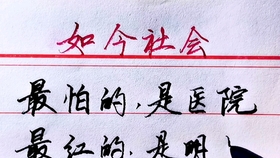 如今社会
最怕的，是医院
最红的，是明